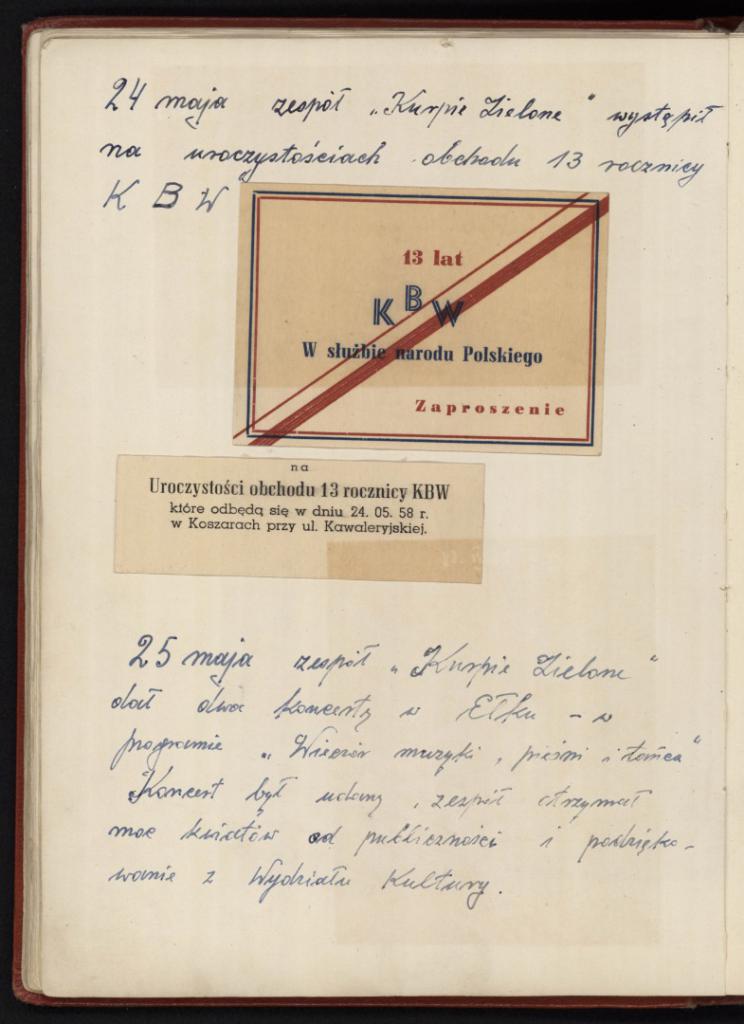 24 maja zespół „Kurpie Zielone" wystąpił
na uroczystościach obchodu 13 rocznicy
K B W
13 lat
KBW
W służbie narodu Polskiego
Zaproszenie
na
Uroczystości obchodu 13 rocznicy KBW
które odbędą się w dniu 24. 05. 58 r.
w Koszarach przy ul. Kawaleryjskiej.
25 maja zespół „Kurpie Zielone"
dał dwa koncerty w Ełku - w
programie „Wieczór muzyki, pieśni i tańca"
Koncert był udany, zespół otrzymał
moc kwiatów od publiczności i podzięko-
wanie z Wydziału Kultury.